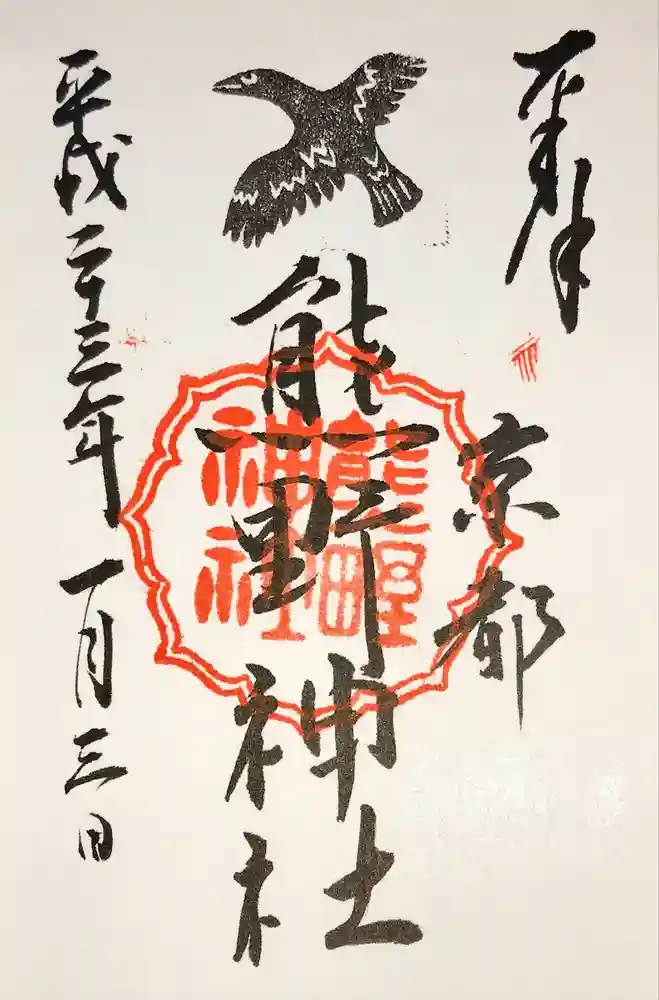 奉拝
京都
熊野神社
熊野
神社
平成二十三年一月三日